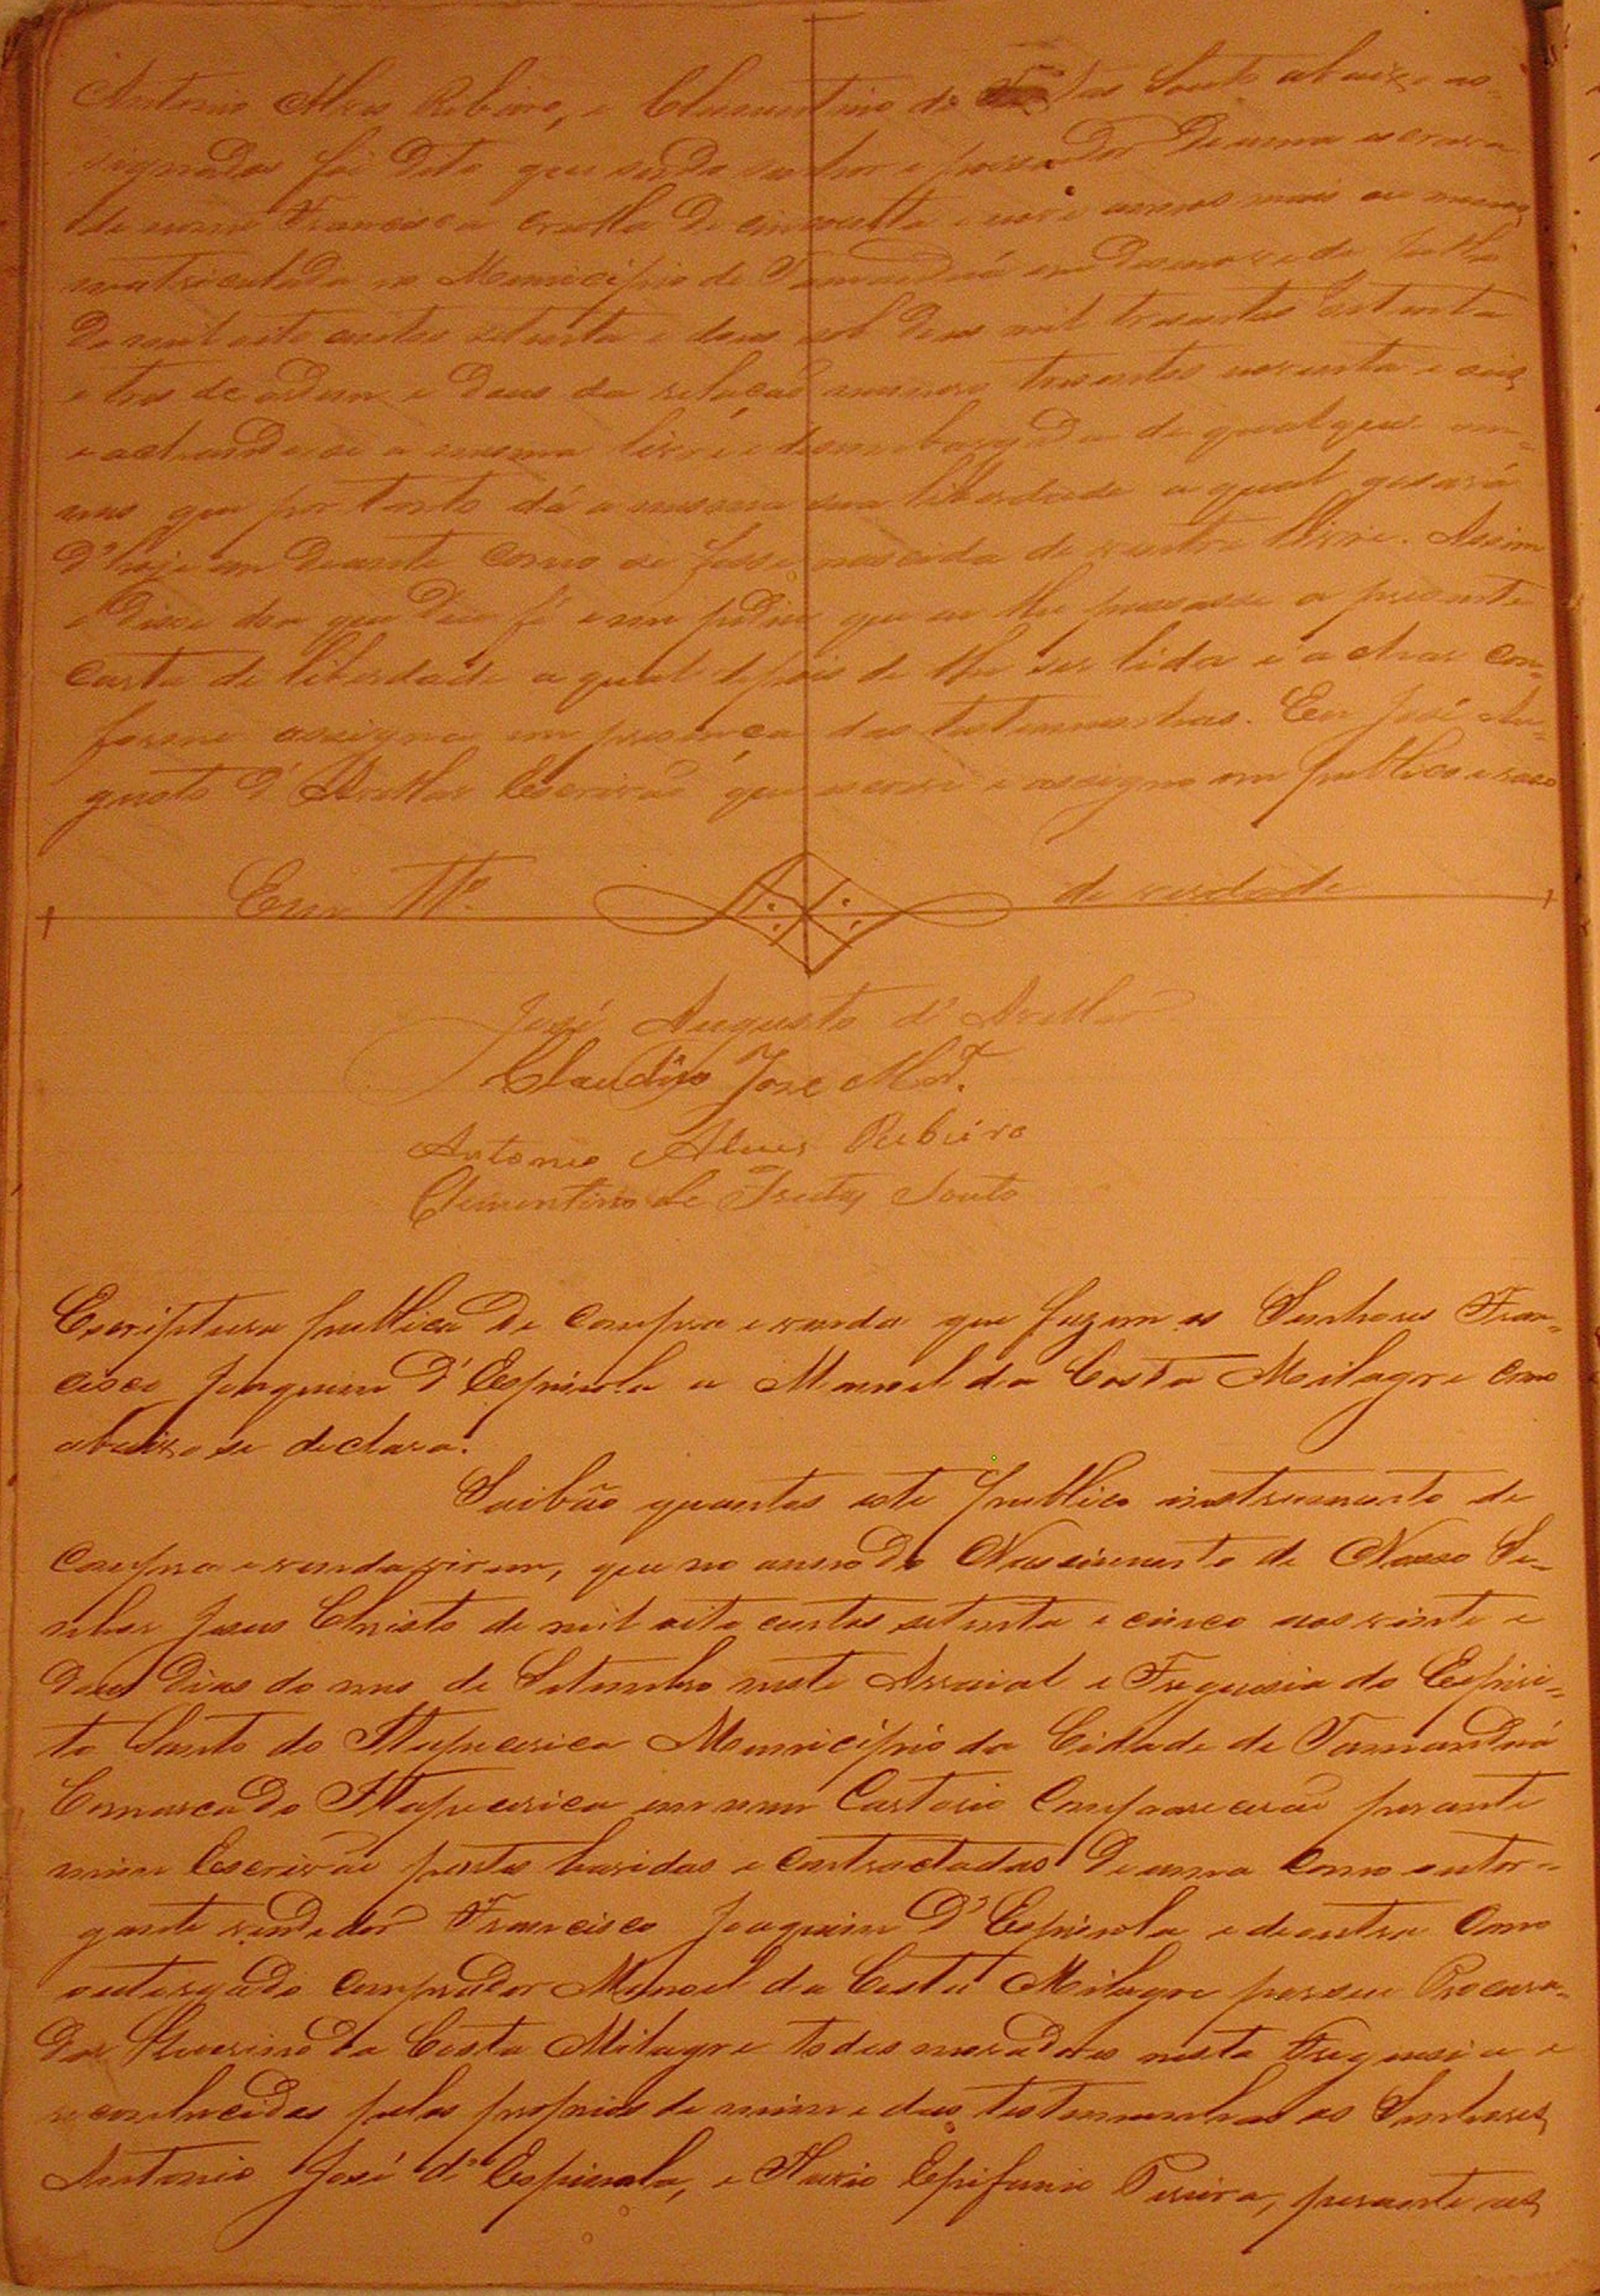 Antonio Alves Ribeiro, e Clementino de Freitas Souto abaixo as-
signados foi dito que sendo senhor e possuidor de uma escrava
de nome Francisca crioulla de cincoenta e nove annos mais ou menos
matriculada no Municipio de Tamanduá em desenove de Julho
de mil oito centos setenta e dous sob dous mil trezentos setenta
e tres de ordem e dous da relação numero trezentos noventa e seis
e achando-se a mesma livre e desembargada de qualquer
que por tanto dá a mesma sua liberdade a qual gosará
d'hoje em deante como se fosse nascida de ventre livre. Assim
e disse do que dou fé e me pedio que eu lhe passasse a presente
carta de liberdade a qual depois de lhe ser lida e achar con-
forme assigna em presença das testemunhas. Eu José Au-
gusto d'Avellar Escrivão que escrevi e assigno em publico e raso
Em Tto. de verdade
José Augusto d'Avellar
Claudino Jose
Antonio Alves Ribeiro
Clementino de Freitas Souto
Escriptura publica de compra e venda que fazem os Senhores Fran-
cisco Joaquim d'Espindola a Manoel da Costa Milagre como
abaixo se declara.
Saibão quantos este publico instrumento de
compra e venda virem, que no anno do Nascimento de Nosso Se-
nhor Jesus Christo de mil oito centos setenta e cinco aos vinte e
dous dias do mes de Setembro neste Arraial e Freguesia do Espiri-
to Santo do Itapecerica Municipio da Cidade de Tamanduá
Comarca do Itapecerica em meu Cartorio Comparecerão perante
mim Escrivão partes havidas e contractadas de uma como outor-
gante vendedor Francisco Joaquim d'Espindola e de outra como
outorgado comprador Manoel da Costa Milagre por seu Procura-
dor da Costa Milagre todos moradores nesta Freguesia e
reconhecidos pelos proprios de mim e das testemunhas os Senhores
Antonio José d'Espindola, e Epifanio Pereira, perante as